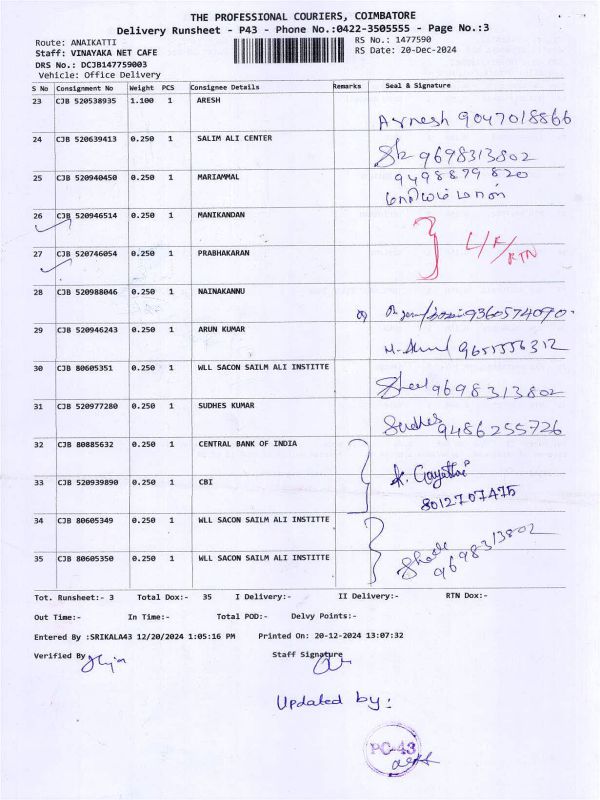 THE PROFESSIONAL COURIERS, COIMBATORE
Delivery Runsheet - P43 - Phone No.:0422-3505555 - Page No.:3
Route: ANAIKATTI RS No.: 1477590
Staff: VINAYAKA NET CAFE RS Date: 20-Dec-2024
DRS No.: DCJB147759003
Vehicle: Office Delivery
S No Consignment No Weight PCS Consignee Details Remarks Seal & Signature
23 CJB 520538935 1.100 1 ARESH
9047018866
24 CJB 520639413 0.250 1 SALIM ALI CENTER
9698313802
25 CJB 520940450 0.250 1 MARIAMMAL 9498879820
26 CJB 520946514 0.250 1 MANIKANDAN
L/F/RTN
27 CJB 520746054 0.250 1 PRABHAKARAN
28 CJB 520988046 0.250 1 NAINAKANNU
9360574090
29 CJB 520946243 0.250 1 ARUN KUMAR
30 CJB 80605351 0.250 1 WLL SACON SAILM ALI INSTITTE
9698313802
31 CJB 520977280 0.250 1 SUDHES KUMAR
Sudhes 9486255726
32 CJB 80885632 0.250 1 CENTRAL BANK OF INDIA
K. Gayathri
33 CJB 520939890 0.250 1 CBI
8012707475
34 CJB 80605349 0.250 1 WLL SACON SAILM ALI INSTITTE
9698313802
35 CJB 80605350 0.250 1 WLL SACON SAILM ALI INSTITTE
Tot. Runsheet:- 3 Total Dox:- 35 I Delivery:- II Delivery:- RTN Dox:-
Out Time:- In Time:- Total POD:- Delvy Points:-
Entered By :SRIKALA43 12/20/2024 1:05:16 PM Printed On: 20-12-2024 13:07:32
Verified By Staff Signature
Updated by:
PC-43